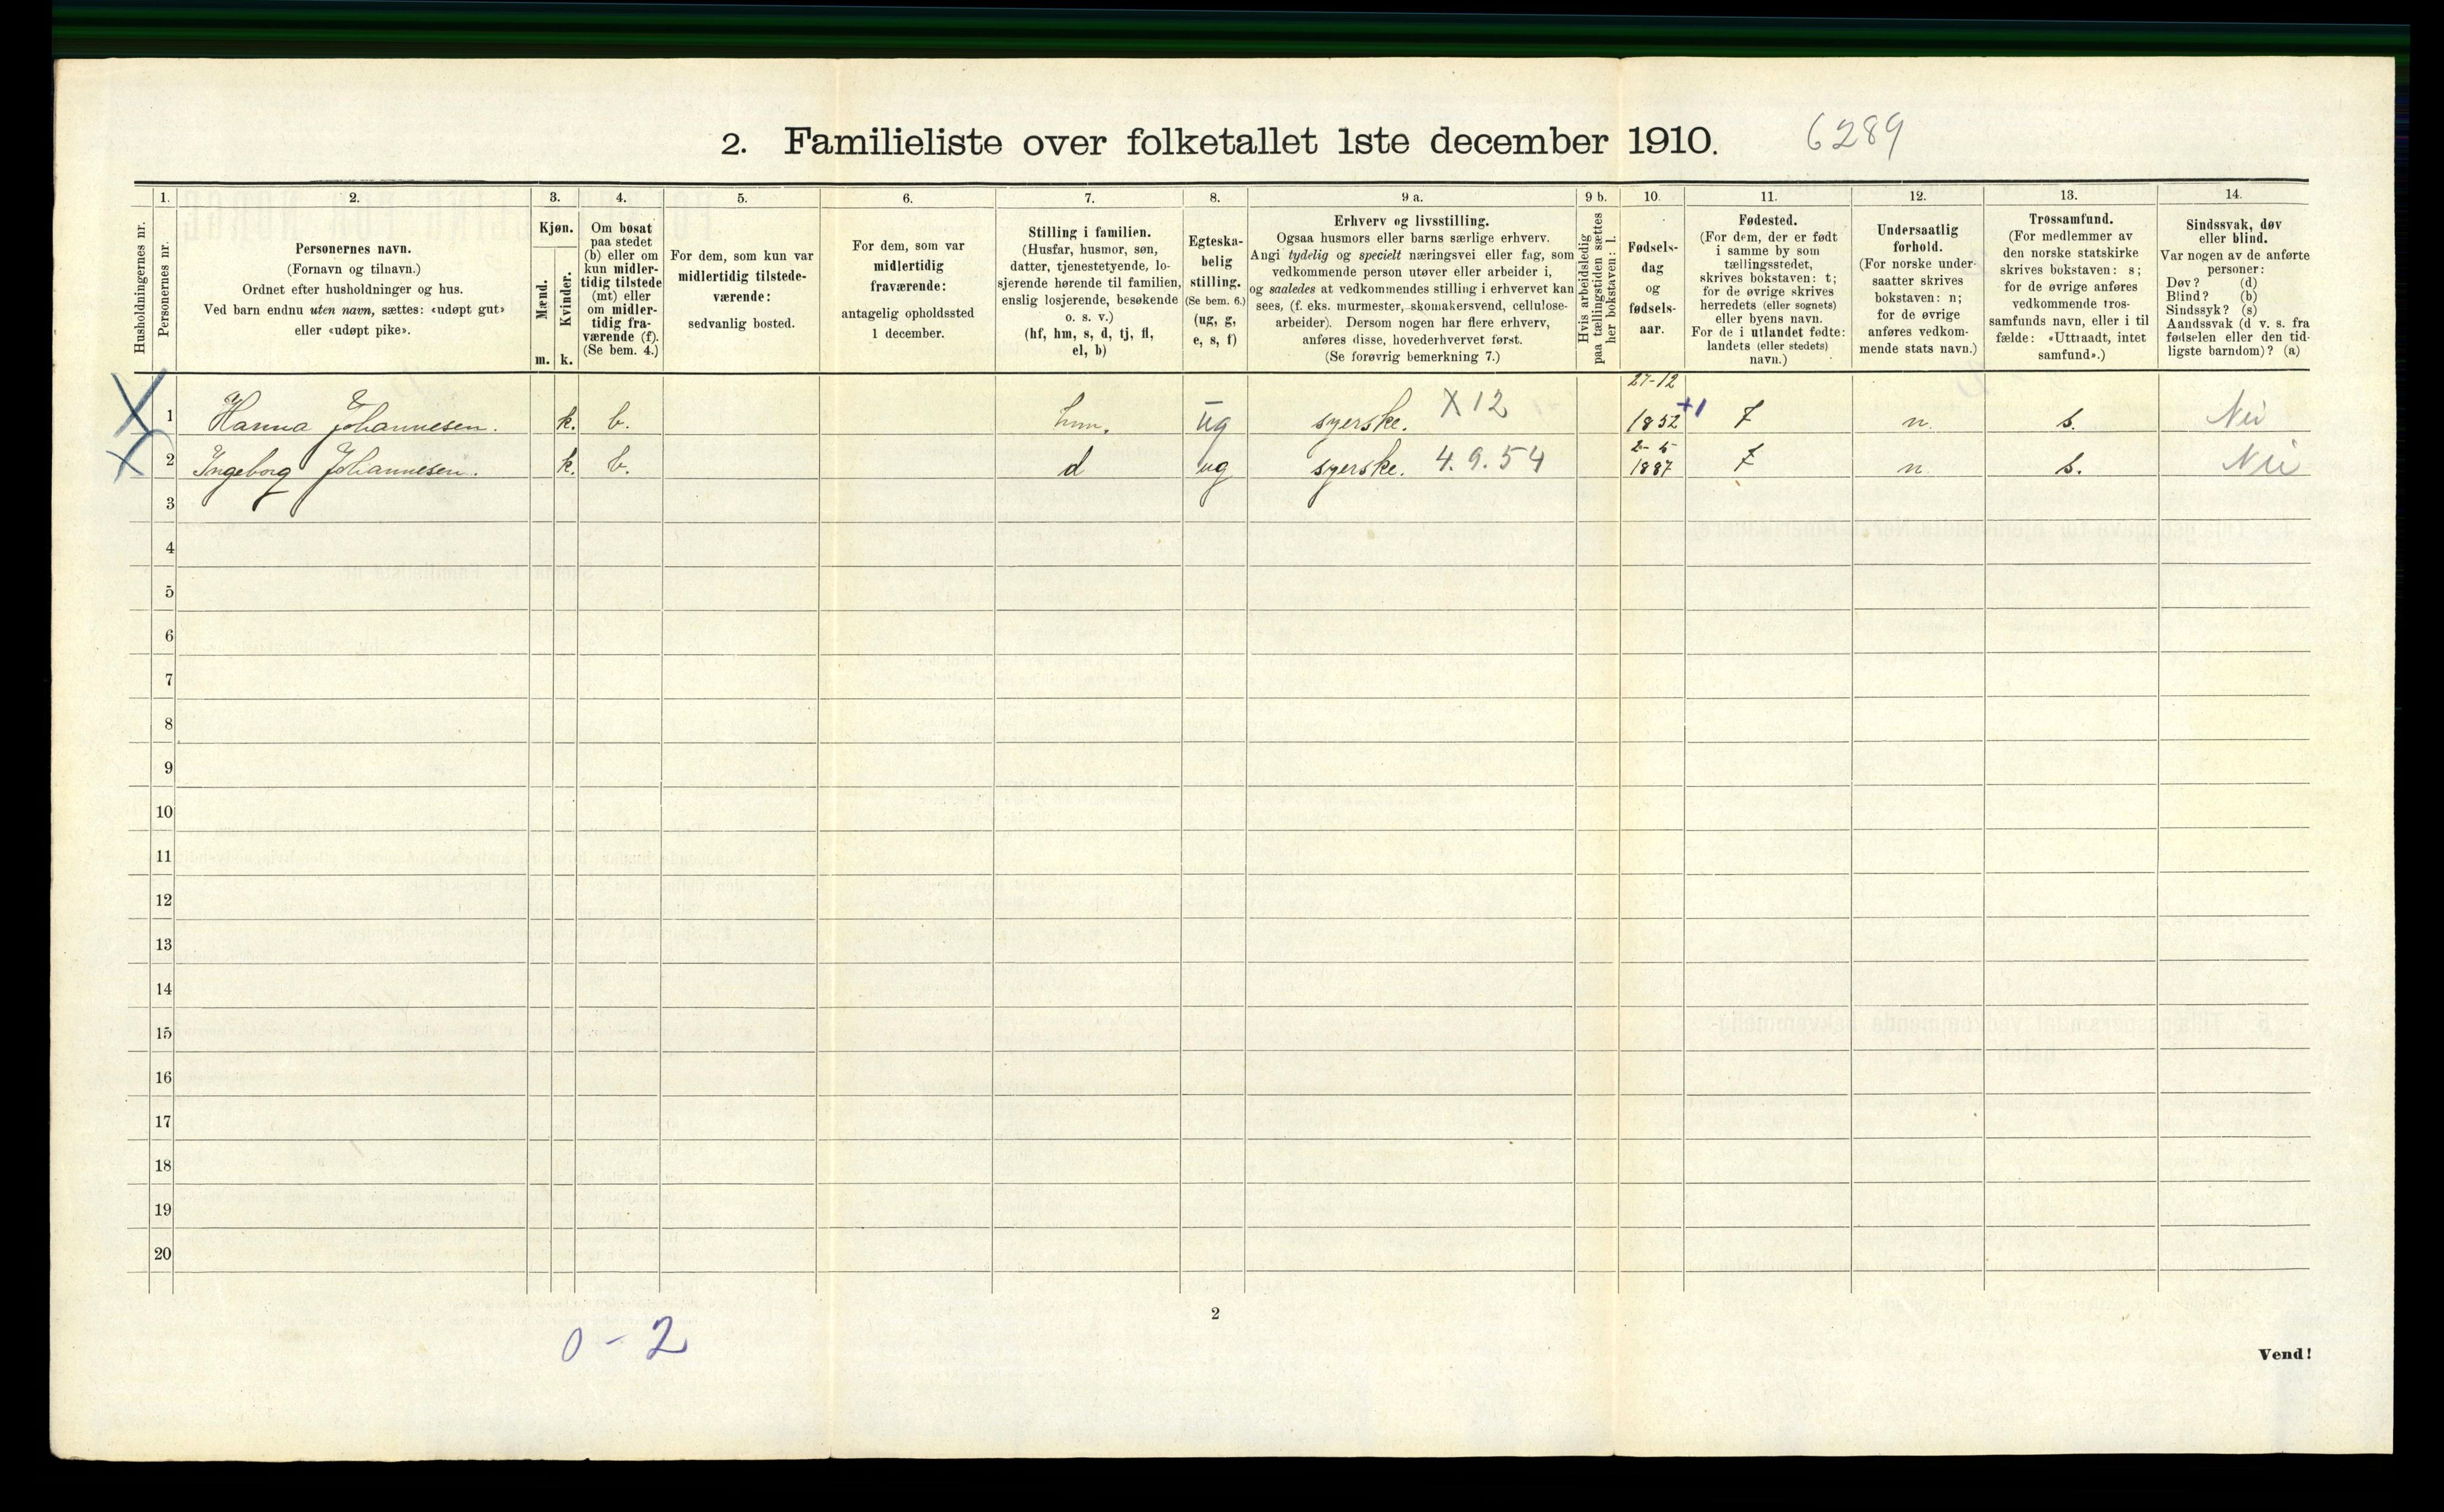 2. Familieliste over folketallet 1ste december 1910. 6289
Husholdningernes nr.
1.
Personernes nr.
2.
Personernes navn.
(Fornavn og tilnavn.)
Ordnet efter husholdninger og hus.
Ved barn endnu uten navn, sættes: «udøpt gut»
eller «udøpt pike».
3.
Kjøn.
Mænd.
m.
Kvinder.
k.
4.
Om bosat
paa stedet
(b) eller om
kun midler-
tidig tilstede
(mt) eller
om midler-
tidig fra-
værende (f).
(Se bem. 4.)
5.
For dem, som kun var
midlertidig tilstede-
værende:
sedvanlig bosted.
6.
For dem, som var
midlertidig
fraværende:
antagelig opholdssted
1 december.
7.
Stilling i familien.
(Husfar, husmor, søn,
datter, tjenestetyende, lo-
sjerende hørende til familien,
enslig losjerende, besøkende
o. s. v.)
(hf, hm, s, d, tj, fl,
el, b)
8.
Egteska-
belig
stilling.
(Se bem. 6.)
(ug, g,
e, s, f)
9 a.
Erhverv og livsstilling.
Ogsaa husmors eller barns særlige erhverv.
Angi tydelig og specielt næringsvei eller fag, som
vedkommende person utøver eller arbeider i,
og saaledes at vedkommendes stilling i erhvervet kan
sees, (f. eks. murmester, skomakersvend, cellulose-
arbeider). Dersom nogen har flere erhverv,
anføres disse, hovederhvervet først.
(Se forøvrig bemerkning 7.)
9 b.
Hvis arbeidsledig
paa tællingstiden sættes
her bokstaven: l.
10.
Fødsels-
dag
og
fødsels-
aar.
11.
Fødested.
(For dem, der er født
i samme by som
tællingsstedet,
skrives bokstaven: t;
for de øvrige skrives
herredets (eller sognets)
eller byens navn.
For de i utlandet fødte:
landets (eller stedets)
navn.)
12.
Undersaatlig
forhold.
(For norske under-
saatter skrives
bokstaven: n;
for de øvrige
anføres vedkom-
mende stats navn.)
13.
Trossamfund.
(For medlemmer av
den norske statskirke
skrives bokstaven: s;
for de øvrige anføres
vedkommende tros-
samfunds navn, eller i til
fælde: «Uttraadt, intet
samfund».)
14.
Sindssvak, døv
eller blind.
Var nogen av de anførte
personer:
Døv? (d)
Blind? (b)
Sindssyk? (s)
Aandssvak (d v. s. fra
fødselen eller den tid-
ligste barndom)? (a)
27-12
X 1 Hanna Johannesen. k. b. hm. ug syerske. X 12 1852 +1 t n. s. Nei
2-5
X 2 Ingeborg Johannesen. k. b. d ug syerske. 4.9.54 1887 t n. s. Nei
3
4
5
6
7
8
9
10
11
12
13
14
15
16
17
18
19
20
2
0 - 2
Vend!